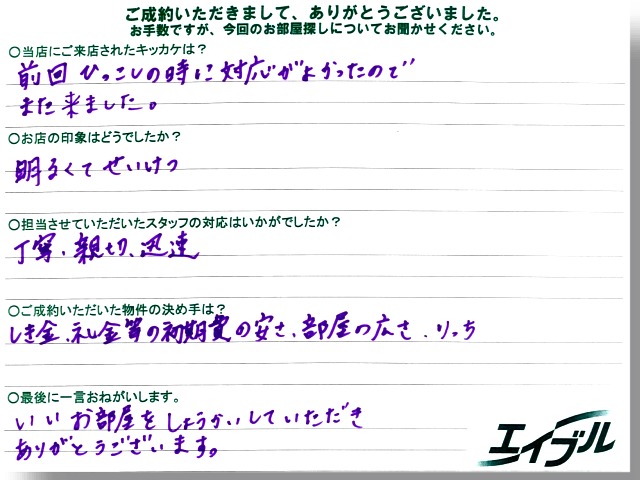 ご成約いただきまして、ありがとうございました。
お手数ですが、今回のお部屋探しについてお聞かせください。
○当店にご来店されたキッカケは？
前回ひっこしの時に対応がよかったので
また来ました。
○お店の印象はどうでしたか？
明るくてせいけつ
○担当させていただいたスタッフの対応はいかがでしたか？
丁寧、親切、迅速
○ご成約いただいた物件の決め手は？
しき金、礼金等の初期費の安さ、部屋の広さ、りっち
○最後に一言おねがいします。
いいお部屋をしょうかいしていただき
ありがとうございます。
エイブル